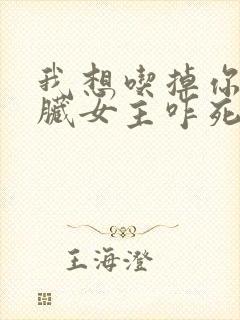 我想喫掉你
臟女主咋死
王海澄